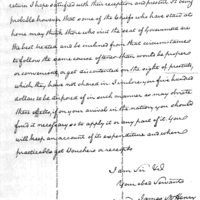 return I hope satisfied with their reception and presents. It being
probable however that some of the Chiefs who have staid at
home may think those who visit the seat of Government are
the best treated and be inclined from that circumstance
to follow the same course oftener than would be proper
or convenient, or get discontented on the sight of presents,
which they have not shared in. I enclose you five hundred
dollars to be disposed of in such manner as may obviate
these effects, if on your arrival in the nation, you should
find it necessary so to apply it or any part of it. You
will keep an account of its expenditure and when
practicable get Vouchers or receipts
I am Sir &c
Your obed Servant
James McHenry